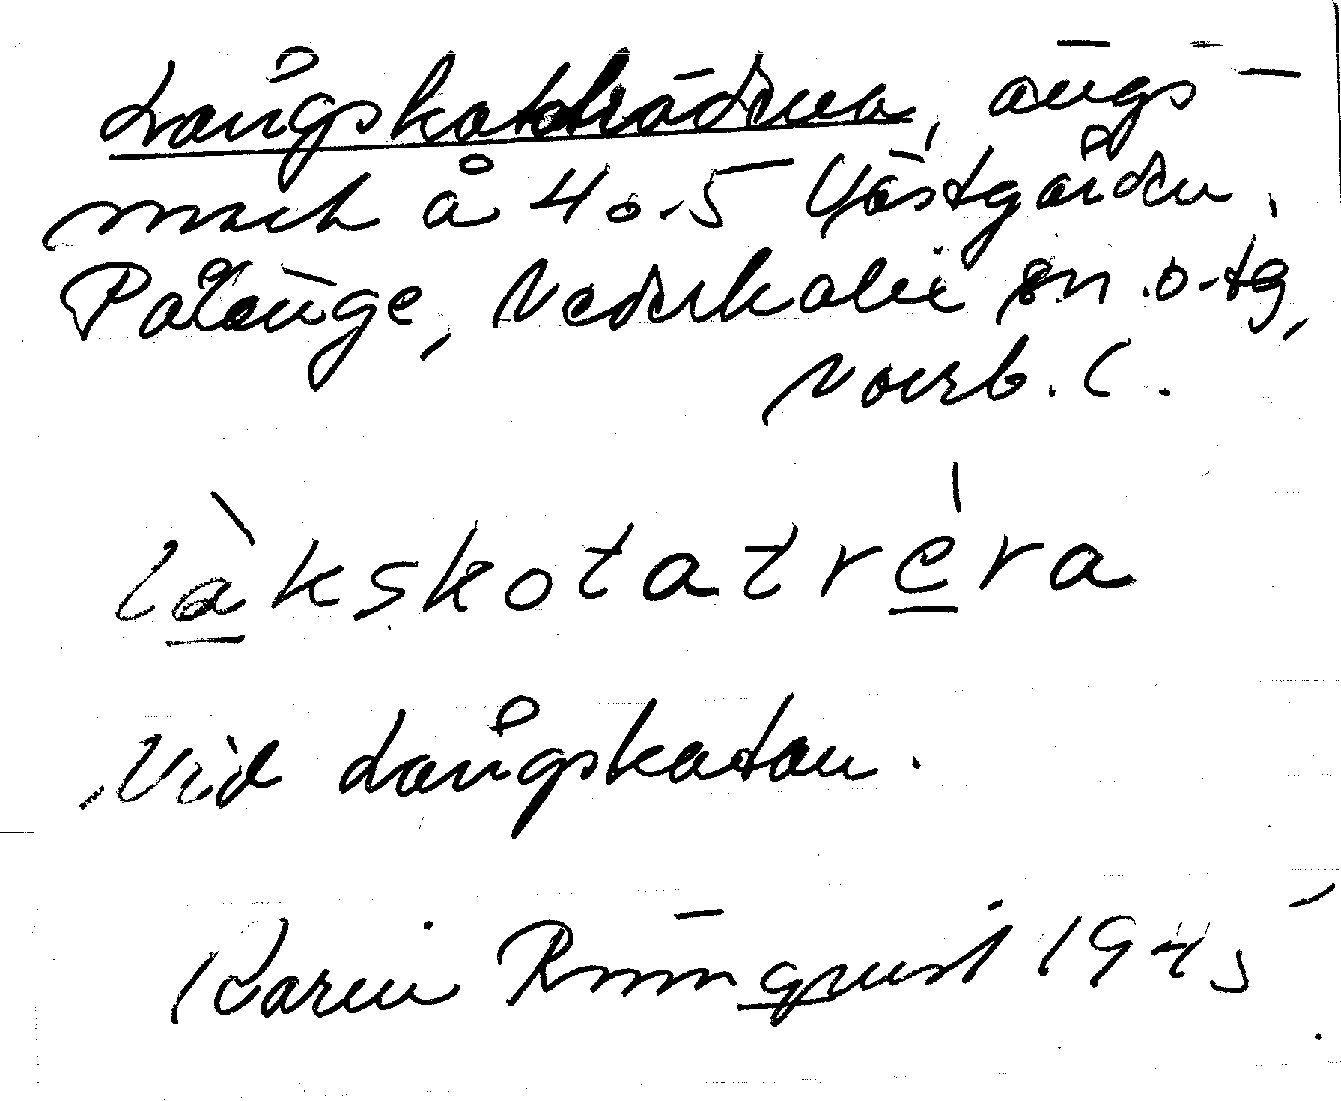 Långskataträdena, ängs-
mark å 4 o. 5 Västgården,
Pålänge, Nederkalix sn o. tg,
Norrb. l.
làkskotatréra
Vid Långskatan.
Karin Rönnqvist 1945